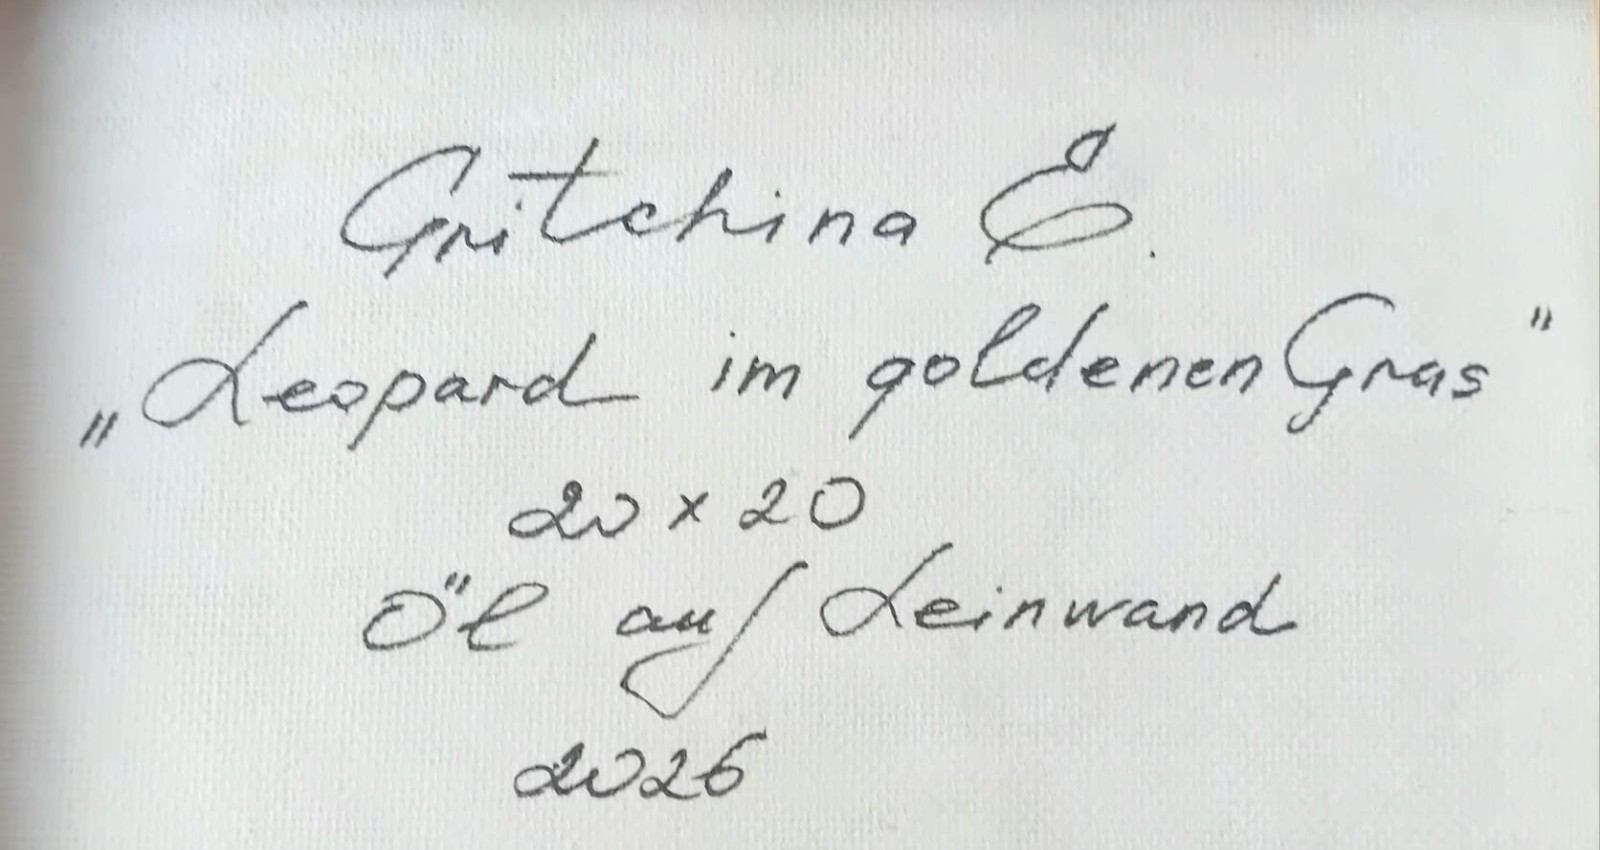 Gritchina E.
„Leopard im goldenen Gras"
20 x 20
Öl auf Leinwand
2026